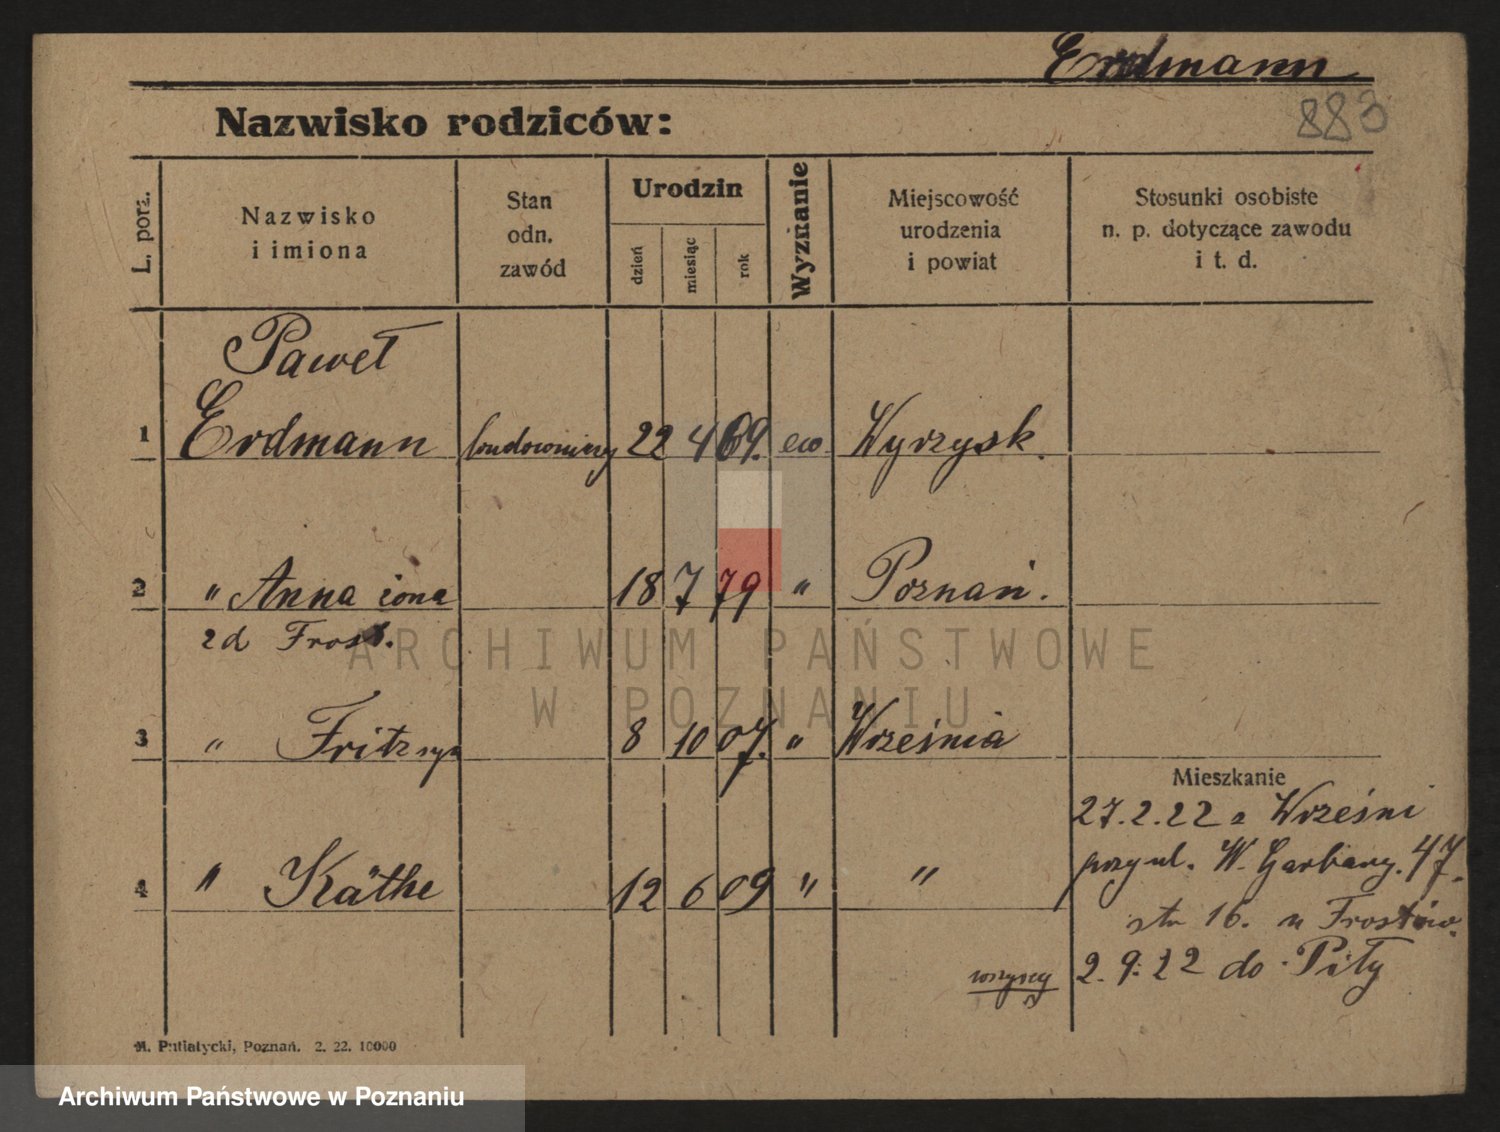 Erdmann
883
Nazwisko rodziców:
L. porz.
Nazwisko
i imiona
Stan
odn.
zawód
Urodzin
dzień
miesiąc
rok
Wyznanie
Miejscowość
urodzenia
i powiat
Stosunki osobiste
n. p. dotyczące zawodu
i t. d.
Paweł
1 Erdmann budowniczy 22 4 69. ew. Wyrzysk.
2 " Anna żona 18 7 79 " Poznań.
zd Frost.
3 " Fritz syn 8 10 07. " Września
Mieszkanie
27.2.22 z Wrześni
przy ul. W. Garbary. 47.
4 " Käthe 12 6 09 " "
16. u Frostów.
wszyscy 2.9.22 do Piły
M. Putiatycki, Poznań. 2. 22. 10000
ARCHIWUM PAŃSTWOWE
W POZNANIU
Archiwum Państwowe w Poznaniu